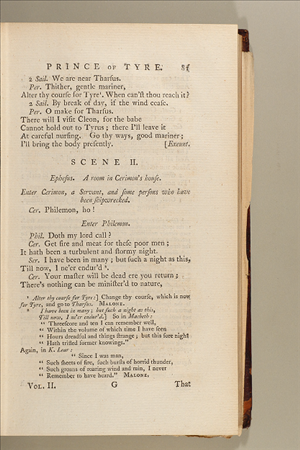 PRINCE OF TYRE. 81
2 Sail. We are near Tharſus.
Per. Thither, gentle mariner,
Alter thy courſe for Tyre¹. When can'ſt thou reach it?
2 Sail. By break of day, if the wind ceaſe.
Per. O make for Tharſus.
There will I viſit Cleon, for the babe
Cannot hold out to Tyrus; there I'll leave it
At careful nurſing. Go thy ways, good mariner;
I'll bring the body preſently. [Exeunt.
SCENE II.
Epheſus. A room in Cerimon's houſe.
Enter Cerimon, a Servant, and ſome perſons who have
been ſhipwrecked.
Cer. Philemon, ho!
Enter Philemon.
Phil. Doth my lord call?
Cer. Get fire and meat for theſe poor men;
It hath been a turbulent and ſtormy night.
Ser. I have been in many; but ſuch a night as this,
Till now, I ne'er endur'd ².
Cer. Your maſter will be dead ere you return;
There's nothing can be miniſter'd to nature,
Alter thy courſe for Tyre:] Change thy courſe, which is now
for Tyre, and go to Tharſus. MALONE.
I have been in many; but ſuch a night as this,
Till now, I ne'er endur'd.] So in Macbeth:
“ Threeſcore and ten I can remember well,
“ Within the volume of which time I have ſeen
“ Hours dreadful and things ſtrange; but this ſore night
“ Hath trifled former knowings.”
Again, in K. Lear:
“ Since I was man,
“ Such ſheets of fire, ſuch burſts of horrid thunder,
“ Such groans of roaring wind and rain, I never
“ Remember to have heard.” MALONE.
VOL. II. G That